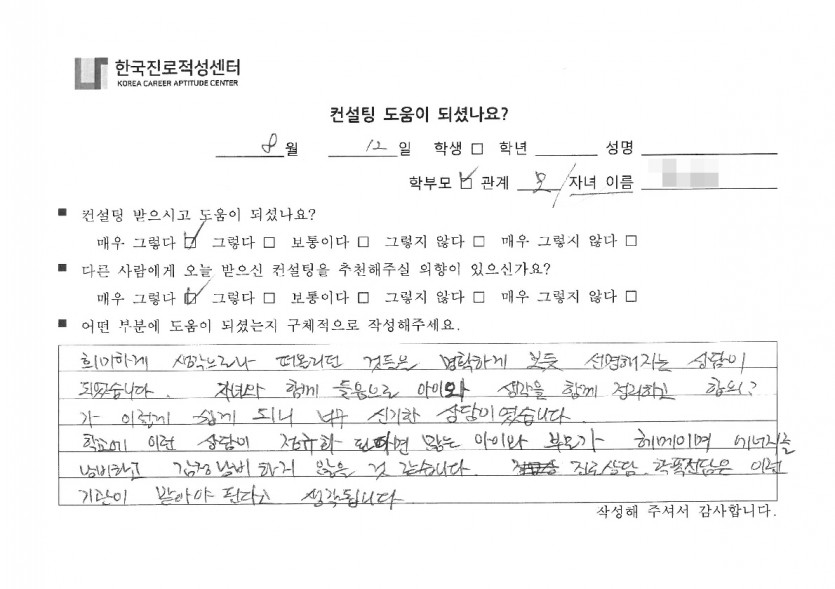 한국진로적성센터
KOREA CAREER APTITUDE CENTER
컨설팅 도움이 되셨나요?
8 월 12 일 학생 □ 학년 성명
학부모 ☑ 관계 모 / 자녀 이름
■ 컨설팅 받으시고 도움이 되셨나요?
매우 그렇다 ☑ 그렇다 □ 보통이다 □ 그렇지 않다 □ 매우 그렇지 않다 □
■ 다른 사람에게 오늘 받으신 컨설팅을 추천해주실 의향이 있으신가요?
매우 그렇다 ☑ 그렇다 □ 보통이다 □ 그렇지 않다 □ 매우 그렇지 않다 □
■ 어떤 부분에 도움이 되셨는지 구체적으로 작성해주세요.
희미하게 생각노르나 떠올리던 것들은 명확하게 붓듯 선명해지는 상담이
되었습니다. 자녀와 함께 들음으로 아이와 생각을 함께 정리하고 합의?
가 이렇게 쉽게 되니 너무 신기한 상담이였습니다.
학교에 이런 상담이 정규화 된다면 많은 아이와 부모가 헤메이며 에너지를
낭비하고 감정낭비 하지 않을 것 같습니다. 진로상담. 학폭전담은 이런
기관이 맡아야 된다고 생각됩니다
작성해 주셔서 감사합니다.